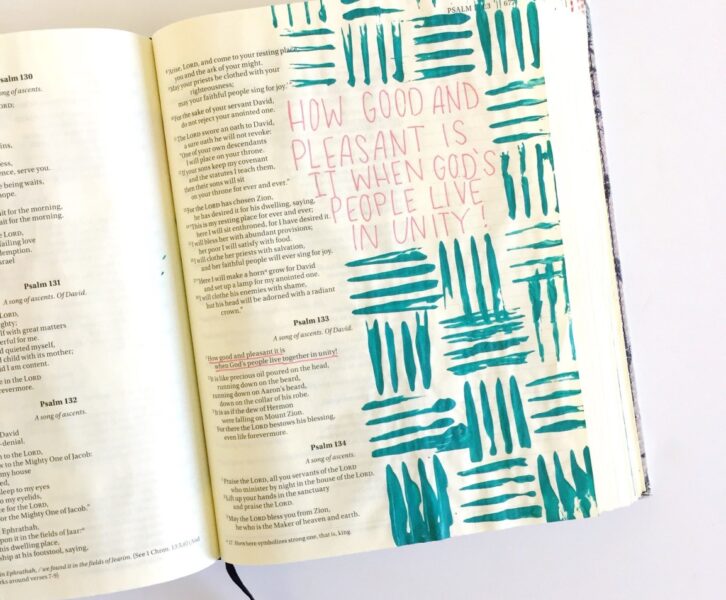 salm 130
ng of ascents.
ORD;
ins,
ess,
ence, serve you.
being waits,
hope.
ait for the morning,
ait for the morning.
LORD,
failing love
demption.
srael
Psalm 131
A song of ascents. Of David.
LORD,
ghty;
lf with great matters
erful for me.
d quieted myself,
d child with its mother;
ild I am content.
e in the LORD
evermore.
Psalm 132
A song of ascents.
David
-denial.
h to the LORD,
w to the Mighty One of Jacob:
my house
ed,
leep to my eyes
to my eyelids,
e for the LORD,
or the Mighty One of Jacob."
Ephrathah,
upon it in the fields of Jaar:
his dwelling place,
ship at his footstool, saying,
in Ephrathah, / we found it in the fields of Jearim. (See 1 Chron. 13:5,6)
arks around verses 7-9)
PSALM
677
8 'Arise, LORD, and come to your resting place,
you and the ark of your might.
9 May your priests be clothed with your
righteousness;
may your faithful people sing for joy.'"
10 For the sake of your servant David,
do not reject your anointed one.
11 The LORD swore an oath to David,
a sure oath he will not revoke:
"One of your own descendants
I will place on your throne.
12 If your sons keep my covenant
and the statutes I teach them,
then their sons will sit
on your throne for ever and ever."
13 For the LORD has chosen Zion,
he has desired it for his dwelling, saying,
14 "This is my resting place for ever and ever;
here I will sit enthroned, for I have desired it.
15 I will bless her with abundant provisions;
her poor I will satisfy with food.
16 I will clothe her priests with salvation,
and her faithful people will ever sing for joy.
17 "Here I will make a horn grow for David
and set up a lamp for my anointed one.
18 I will clothe his enemies with shame,
but his head will be adorned with a radiant
crown."
Psalm 133
A song of ascents. Of David.
1 How good and pleasant it is
when God's people live together in unity!
2 It is like precious oil poured on the head,
running down on the beard,
running down on Aaron's beard,
down on the collar of his robe.
3 It is as if the dew of Hermon
were falling on Mount Zion.
For there the LORD bestows his blessing,
even life forevermore.
Psalm 134
A song of ascents.
1 Praise the LORD, all you servants of the LORD
who minister by night in the house of the LORD.
2 Lift up your hands in the sanctuary
and praise the LORD.
3 May the LORD bless you from Zion,
he who is the Maker of heaven and earth.
17 Horn here symbolizes strong one, that is, king.
HOW GOOD AND
PLEASANT IS
IT WHEN GOD'S
PEOPLE LIVE
IN UNITY!